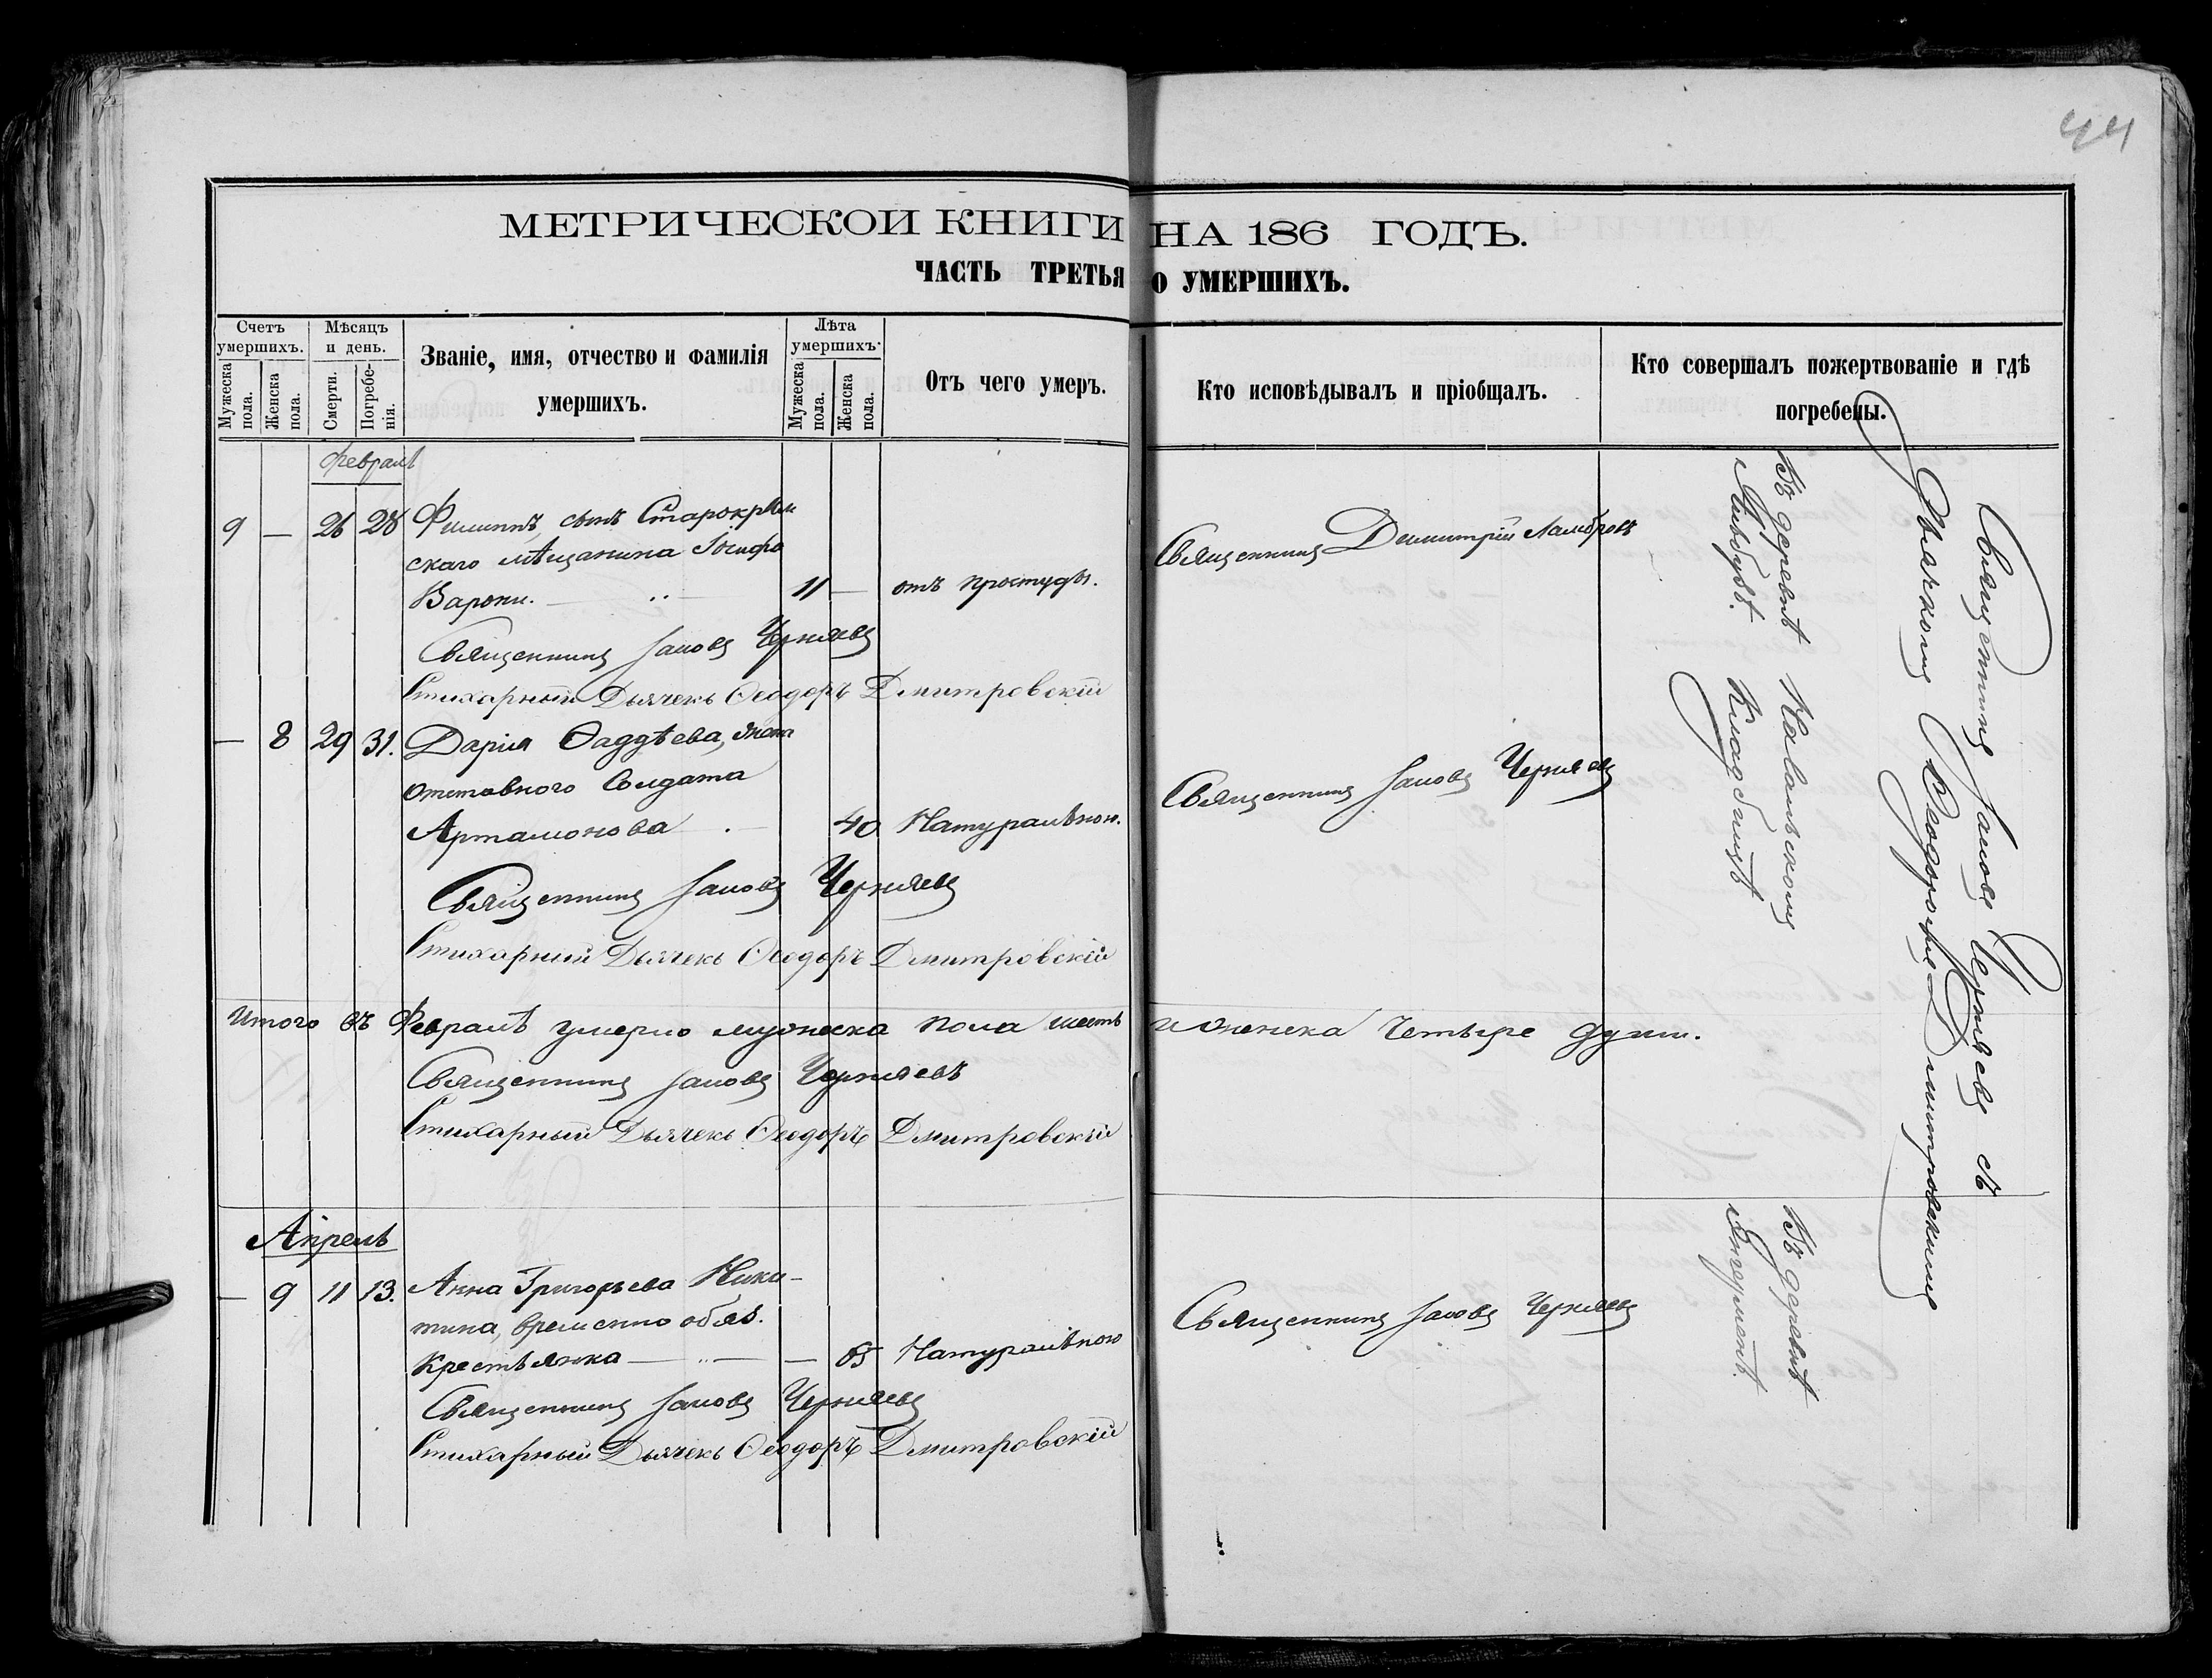 44
МЕТРИЧЕСКОИ КНИГИ НА 186 ГОДЪ.
ЧАСТЬ ТРЕТЬЯ О УМЕРШИХЪ.
Счетъ умершихъ.
Мужеска пола.
Женска пола.
Мѣсяцъ и день.
Смерти.
Погребенія.
Званіе, имя, отчество и фамилія
умершихъ.
Лѣта умершихъ.
Мужеска пола.
Женска пола.
Отъ чего умеръ.
Кто исповѣдывалъ и пріобщалъ.
Кто совершалъ пожертвованіе и гдѣ
погребены.
Февраль
9 — 26 28 Филиппъ, сынъ Старокрым
скаго мѣщанина Іосифа
Варони. — 11 — отъ простуды.
Священникъ Димитрій Ламбровъ
Священникъ Іаковъ Черняевъ
Стихарный Дьячекъ Ѳеодоръ Дмитровскій
— 8 29 31. Дарія Ѳаддѣева, жена
отставного Солдата
Артамонова — 40 Натуральною.
Священникъ Іаковъ Черняевъ
Священникъ Іаковъ Черняевъ
Стихарный Дьячекъ Ѳеодоръ Дмитровскій
Въ деревнѣ
Кладбищѣ
Священникъ Іаковъ Черняевъ съ
Дьячкомъ Ѳеодоромъ Дмитровскимъ
Итого въ Февралѣ умерло мужеска пола шесть и женска четыре души.
Священникъ Іаковъ Черняевъ
Стихарный Дьячекъ Ѳеодоръ Дмитровскій
Апрель
— 9 11 13. Анна Григорьева Ники-
тина, временно обяз.
крестьянка — — 65 Натуральною
Священникъ Іаковъ Черняевъ
Священникъ Іаковъ Черняевъ
Стихарный Дьячекъ Ѳеодоръ Дмитровскій
Въ деревнѣ